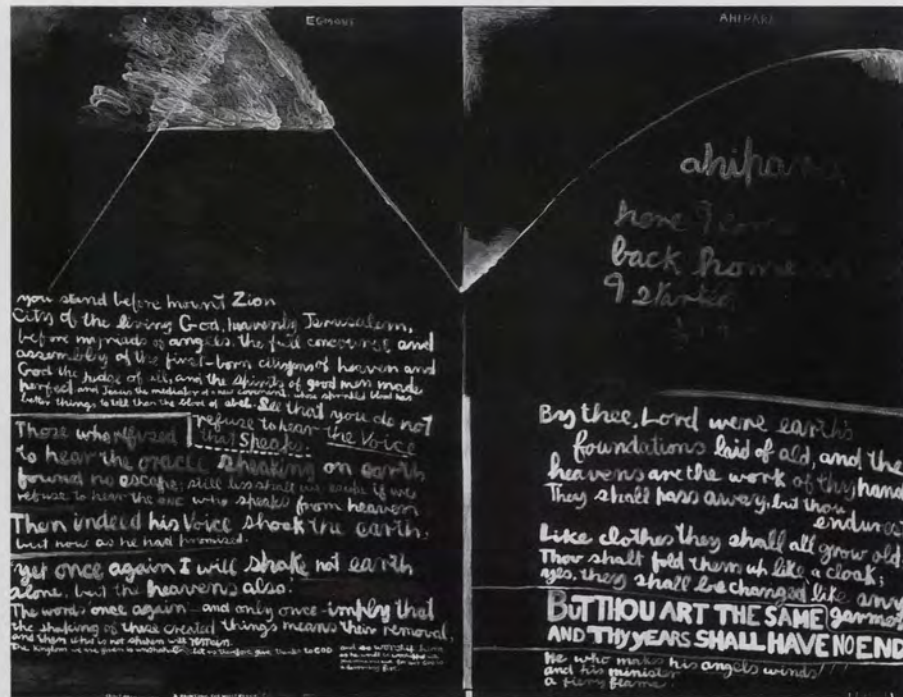 EGMONT
you stand before mount Zion
City of the living God, heavenly Jerusalem,
before myriads of angels, the full concourse and
assembly of the first-born citizens of heaven and
God the judge of all, and the spirits of good men made
perfect and Jesus the mediator of a new covenant, whose sprinkled blood has
better things to tell than the blood of abel. See that you do not
refuse to hear the Voice
that Speaks.
Those who refused
to hear the oracle speaking on earth
found no escape; still less shall we escape if we
refuse to hear the one who speaks from heaven
Then indeed his Voice shook the earth,
but now as he had promised.
yet once again I will shake not earth
alone, but the heavens also.
The words once again - and only once - imply that
the shaking of these created things means their removal
and then what is not shaken will remain.
The kingdom we are given is let us therefore give thanks to GOD
and so worship him
AHIPARA
ahipara
here I come
back home
By thee, Lord were earth's
foundations laid of old, and the
heavens are the work of thy hand
They shall pass away, but thou
endurest
Like clothes they shall all grow old
Thou shalt fold them up like a cloak;
yes, they shall be changed like any
BUT THOU ART THE SAME garment
AND THY YEARS SHALL HAVE NO END
He who makes his angels winds
and his minister
a fiery flame.